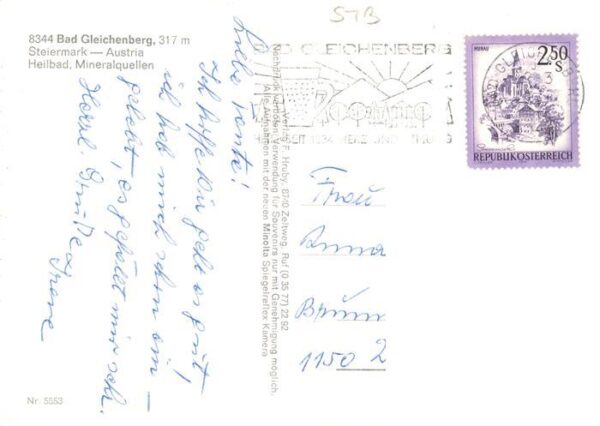 STB
8344 Bad Gleichenberg, 317 m
Steiermark — Austria
Heilbad, Mineralquellen
Liebe Tante!
Ich hoffe Dir geht es gut,
ich hab mich schon ein-
gelebt, es gefällt mir sehr.
Herzl. Grüße
Irene
Nr. 5553
Verlag F. Hruby, 8740 Zeltweg, Ruf (0 35 77) 22 92
Nachdruck verboten. Verwendung für Souvenirs nur mit Genehmigung möglich.
Alle Aufnahmen mit der neuen Minolta Spiegelreflex Kamera
BAD GLEICHENBERG
SEIT 1834 HERZ UND
MURAU
2.50
S
REPUBLIK ÖSTERREICH
Frau
Anna
Brunn
1150 2